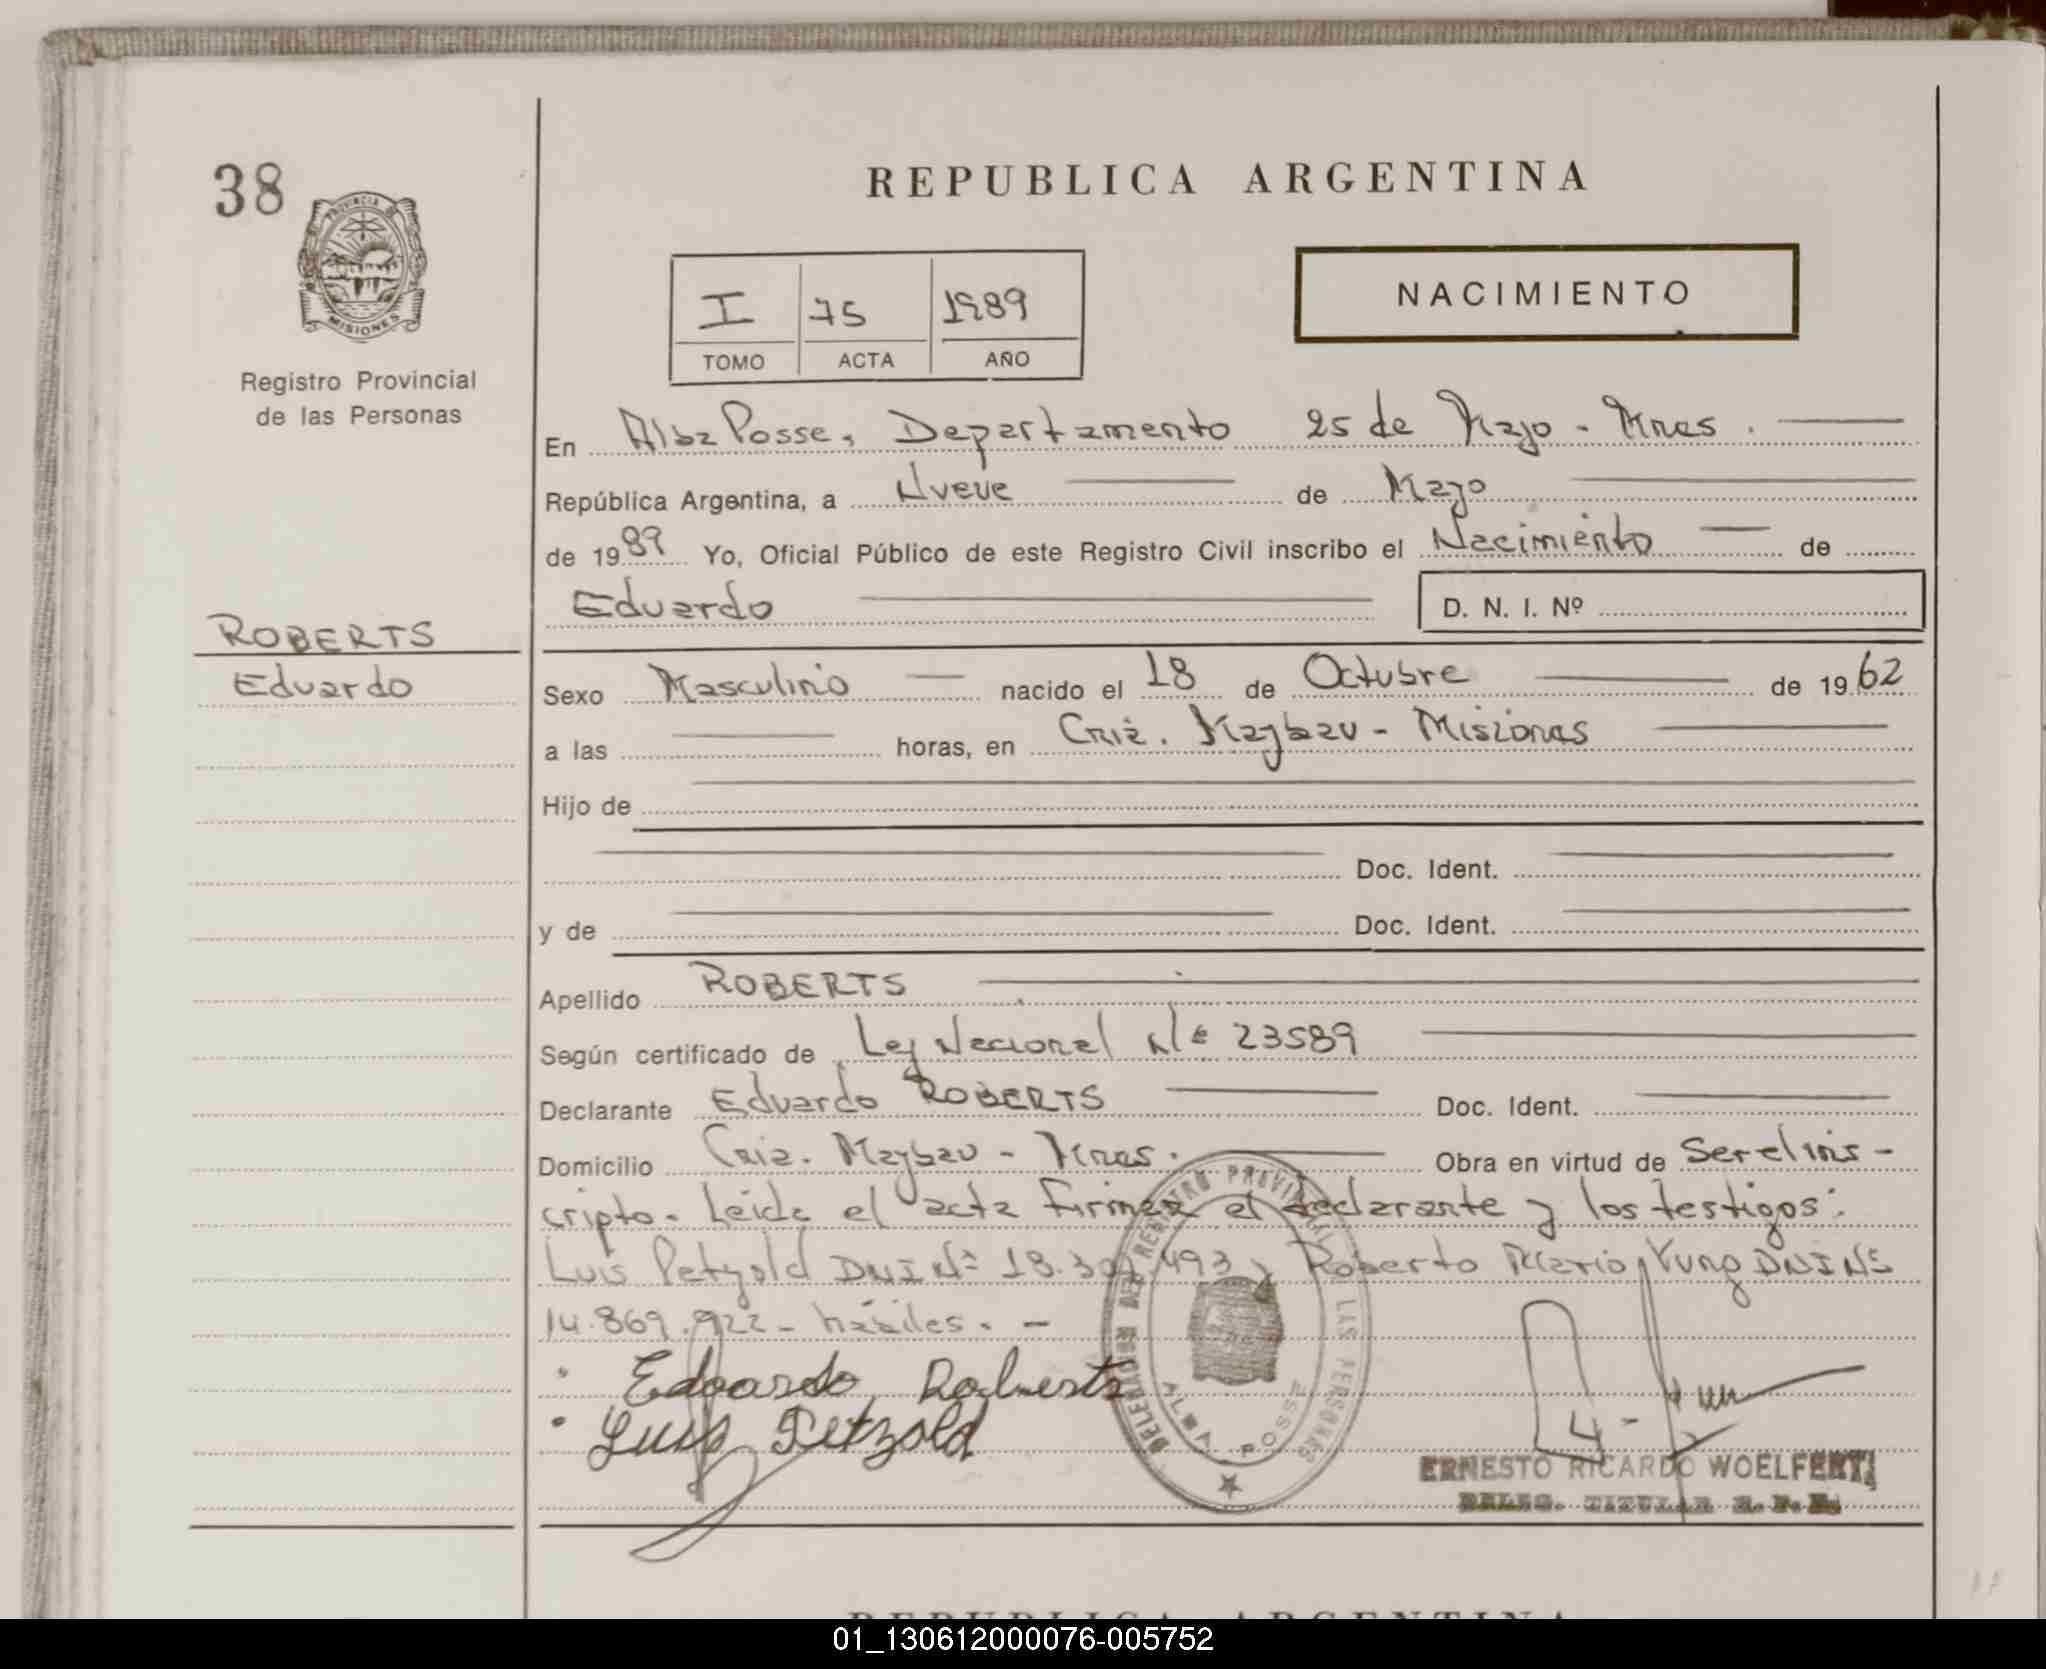 38
PROVINCIA DE
MISIONES
Registro Provincial
de las Personas
ROBERTS
Eduardo
REPUBLICA ARGENTINA
I 75 1989
TOMO ACTA AÑO
NACIMIENTO
En Alba Posse, Departamento 25 de Mayo - Mnes.
República Argentina, a Nueve de Mayo
de 1989 Yo, Oficial Público de este Registro Civil inscribo el Nacimiento de
Eduardo D. N. I. Nº
Sexo Masculino nacido el 18 de Octubre de 1962
a las horas, en Cnia. Maybau - Misiones
Hijo de
Doc. Ident.
y de Doc. Ident.
Apellido ROBERTS
Según certificado de Ley Nacional Nº 23589
Declarante Eduardo ROBERTS Doc. Ident.
Domicilio Cnia. Maybau - Mnes. Obra en virtud de Ser el ins-
cripto. Leida el acta firman el declarante y los testigos:
Luis Petzold DNI Nº 18.307.493 y Roberto Mario Yung DNI Nº
14.869.922 - hábiles. -
Edoardo Roberts
Luis Petzold
REGISTRO PROVINCIAL DE LAS PERSONAS
ALBA POSSE
ERNESTO RICARDO WOELFERT
DELEG. TITULAR R. P. P.
REPUBLICA ARGENTINA
01_130612000076-005752